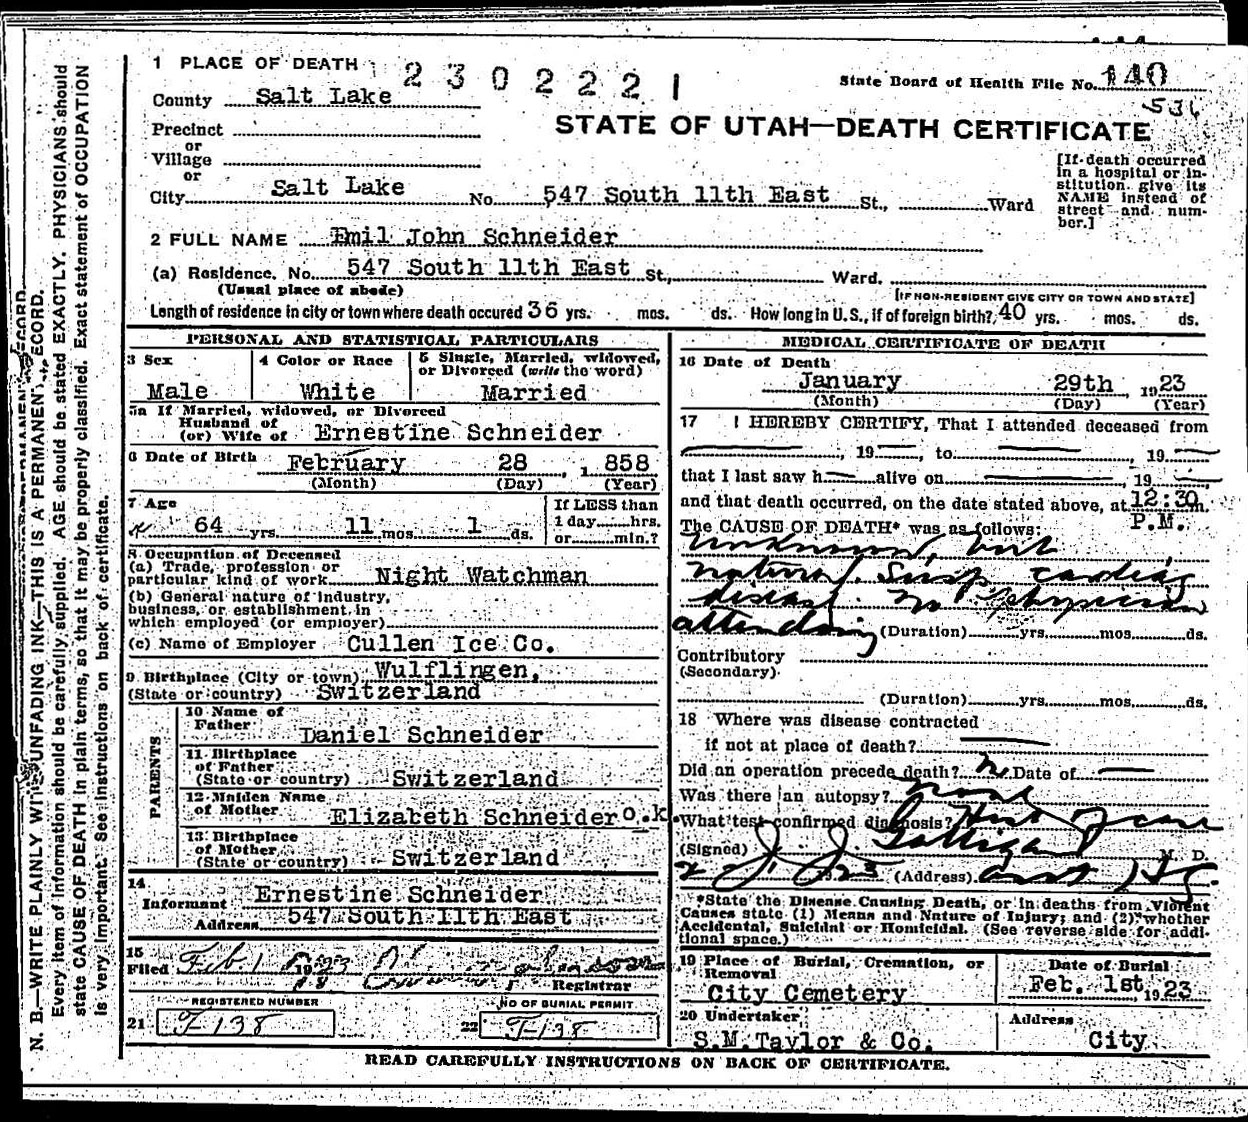 1 PLACE OF DEATH 2302221
State Board of Health File No. 140
536
County Salt Lake
STATE OF UTAH—DEATH CERTIFICATE
Precinct
or
Village
or
City Salt Lake No. 547 South 11th East St., Ward
[If death occurred
in a hospital or in-
stitution give its
NAME instead of
street and num-
ber.]
2 FULL NAME Emil John Schneider
(a) Residence. No. 547 South 11th East St., Ward.
(Usual place of abode)
[IF NON-RESIDENT GIVE CITY OR TOWN AND STATE]
Length of residence in city or town where death occured 36 yrs. mos. ds. How long in U.S., if of foreign birth? 40 yrs. mos. ds.
PERSONAL AND STATISTICAL PARTICULARS
3 Sex
Male
4 Color or Race
White
5 Single, Married, widowed,
or Divorced (write the word)
Married
5a If Married, widowed, or Divorced
Husband of
(or) Wife of Ernestine Schneider
6 Date of Birth February 28, 1858
(Month) (Day) (Year)
7 Age
64 yrs. 11 mos. 1 ds.
If LESS than
1 day......hrs.
or......min.?
8 Occupation of Deceased
(a) Trade, profession or
particular kind of work Night Watchman
(b) General nature of industry,
business, or establishment in
which employed (or employer)
(c) Name of Employer Cullen Ice Co.
9 Birthplace (City or town) Wulflingen,
(State or country) Switzerland
PARENTS
10 Name of
Father Daniel Schneider
11 Birthplace
of Father
(State or country) Switzerland
12 Maiden Name
of Mother Elizabeth Schneider O.K.
13 Birthplace
of Mother
(State or country) Switzerland
14
Informant Ernestine Schneider
Address 547 South 11th East
15
Filed Feb. 1 1923
Registrar
REGISTERED NUMBER
21 F-138
NO OF BURIAL PERMIT
22 F-138
MEDICAL CERTIFICATE OF DEATH
16 Date of Death
January 29th, 1923
(Month) (Day) (Year)
17 I HEREBY CERTIFY, That I attended deceased from
, 19 , to , 19
that I last saw h alive on , 19
and that death occurred, on the date stated above, at 12:30 m.
P.M.
The CAUSE OF DEATH* was as follows:
Unknown, but
natural. Susp cardiac
disease. No physician
attending (Duration) yrs. mos. ds.
Contributory
(Secondary)
(Duration) yrs. mos. ds.
18 Where was disease contracted
if not at place of death?
Did an operation precede death? No Date of
Was there an autopsy? none
What test confirmed diagnosis? Hist of case
(Signed) J. J. Galligan M. D.
(Address)
*State the Disease Causing Death, or in deaths from Violent
Causes state (1) Means and Nature of Injury; and (2) whether
Accidental, Suicidal or Homicidal. (See reverse side for addi-
tional space.)
19 Place of Burial, Cremation, or
Removal
City Cemetery
Date of Burial
Feb. 1st, 1923
20 Undertaker
S.M. Taylor & Co.
Address
City
READ CAREFULLY INSTRUCTIONS ON BACK OF CERTIFICATE.
N. B.—WRITE PLAINLY WITH UNFADING INK—THIS IS A PERMANENT RECORD.
Every item of information should be carefully supplied. AGE should be stated EXACTLY. PHYSICIANS should
state CAUSE OF DEATH in plain terms, so that it may be properly classified. Exact statement of OCCUPATION
is very important. See instructions on back of certificate.